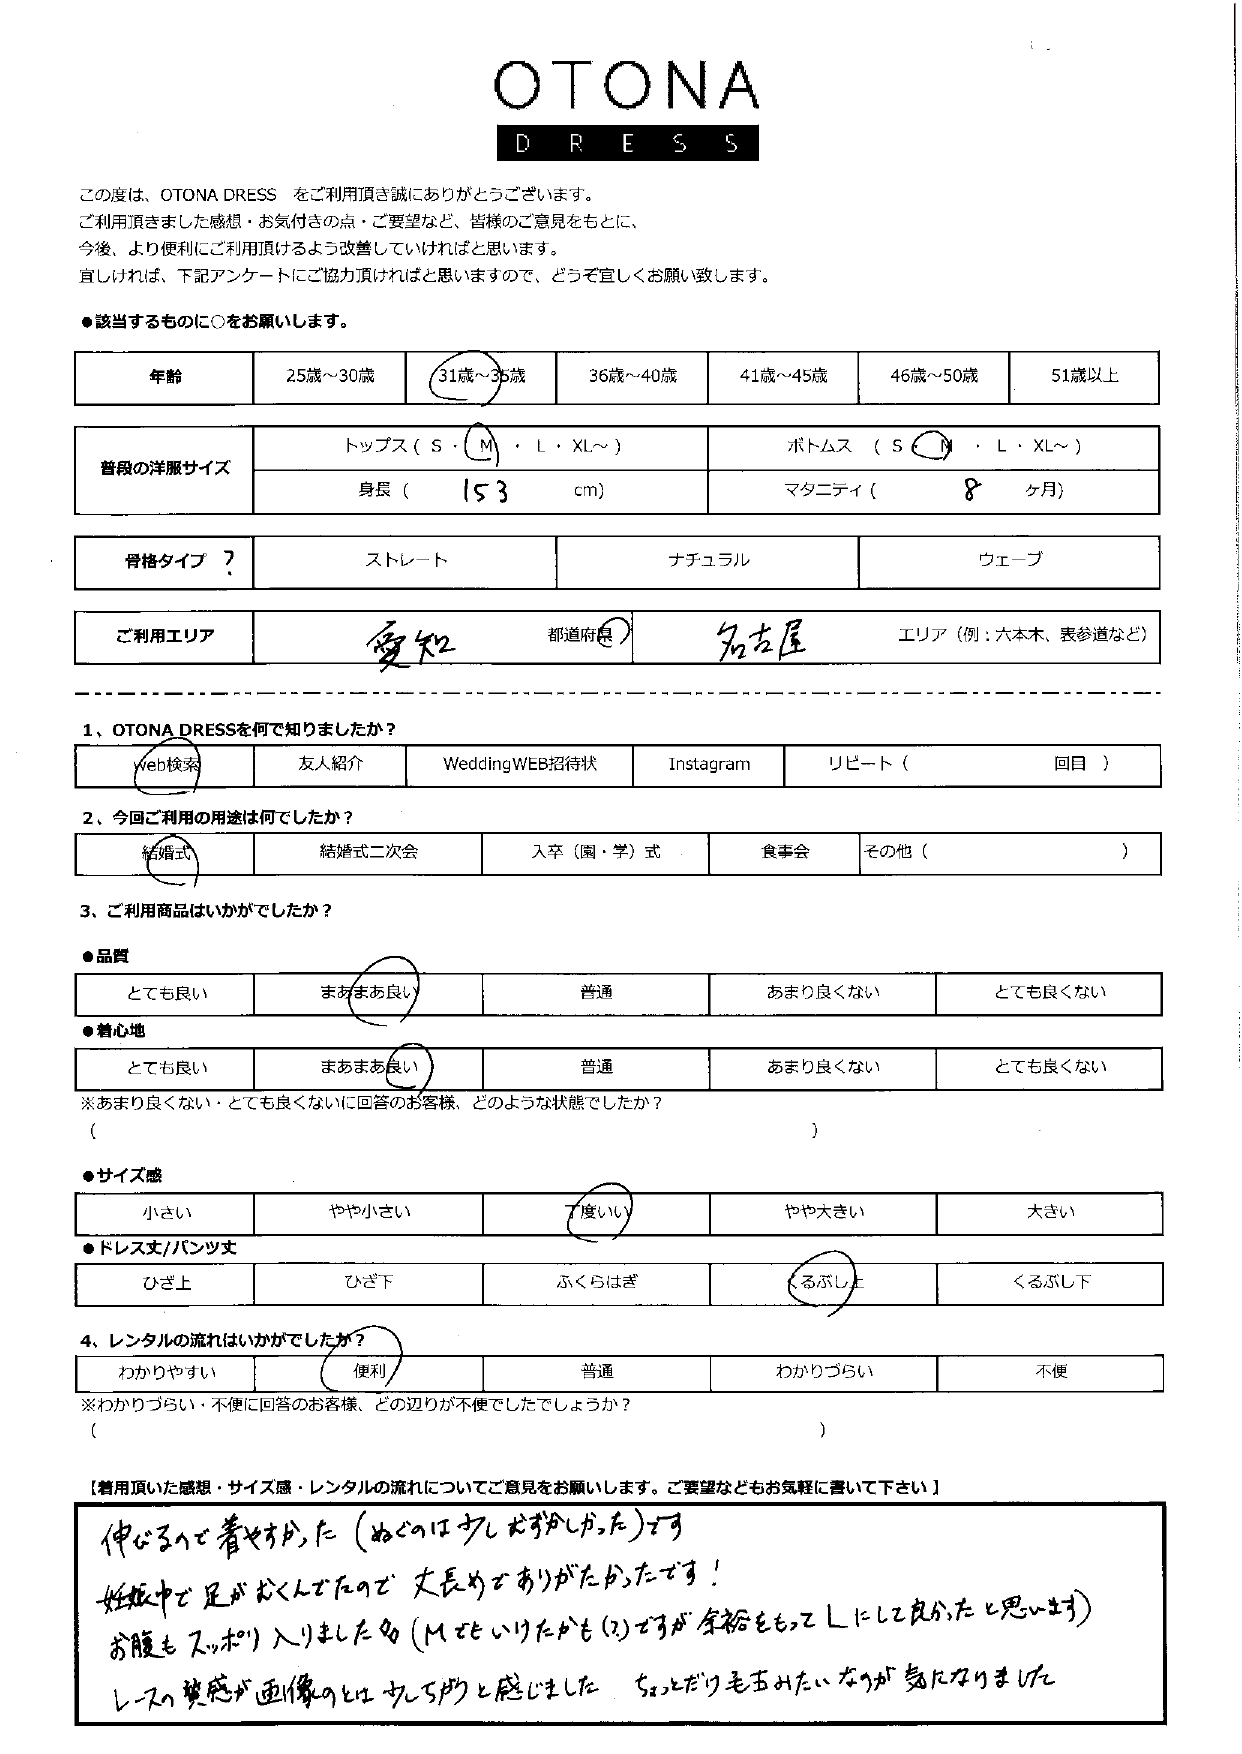 OTONA
DRESS
この度は、OTONA DRESS　をご利用頂き誠にありがとうございます。
ご利用頂きました感想・お気付きの点・ご要望など、皆様のご意見をもとに、
今後、より便利にご利用頂けるよう改善していければと思います。
宜しければ、下記アンケートにご協力頂ければと思いますので、どうぞ宜しくお願い致します。
●該当するものに○をお願いします。
年齢 25歳～30歳 31歳～35歳 36歳～40歳 41歳～45歳 46歳～50歳 51歳以上
普段の洋服サイズ トップス ( S ・ M ・ L ・ XL～ ) ボトムス ( S ・ M ・ L ・ XL～ )
身長 ( 153 cm) マタニティ ( 8 ヶ月)
骨格タイプ ? ストレート ナチュラル ウェーブ
ご利用エリア 愛知 都道府県 名古屋 エリア（例：六本木、表参道など）
1、OTONA DRESSを何で知りましたか？
web検索 友人紹介 WeddingWEB招待状 Instagram リピート（ 回目 ）
2、今回ご利用の用途は何でしたか？
結婚式 結婚式二次会 入卒（園・学）式 食事会 その他（ ）
3、ご利用商品はいかがでしたか？
●品質
とても良い まあまあ良い 普通 あまり良くない とても良くない
●着心地
とても良い まあまあ良い 普通 あまり良くない とても良くない
※あまり良くない・とても良くないに回答のお客様、どのような状態でしたか？
（ ）
●サイズ感
小さい やや小さい 丁度いい やや大きい 大きい
●ドレス丈/パンツ丈
ひざ上 ひざ下 ふくらはぎ くるぶし上 くるぶし下
4、レンタルの流れはいかがでしたか？
わかりやすい 便利 普通 わかりづらい 不便
※わかりづらい・不便に回答のお客様、どの辺りが不便でしたでしょうか？
（ ）
【着用頂いた感想・サイズ感・レンタルの流れについてご意見をお願いします。ご要望などもお気軽に書いて下さい 】
伸びるので着やすかった (ぬぐのは少しむずかしかった)です
妊娠中で足がむくんでたので 丈長めでありがたかったです!
お腹もスッポリ入りました (Mでもいけたかも(?)ですが余裕をもってLにして良かったと思います)
レースの質感が画像のとは少しちがうと感じました ちょっとだけ毛玉みたいなのが気になりました